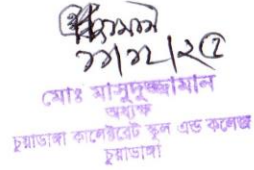 ২১/১২/২৫
মোঃ মাসুদুজ্জামান
অধ্যক্ষ
চুয়াডাঙ্গা কালেক্টরেট স্কুল এন্ড কলেজ
চুয়াডাঙ্গা